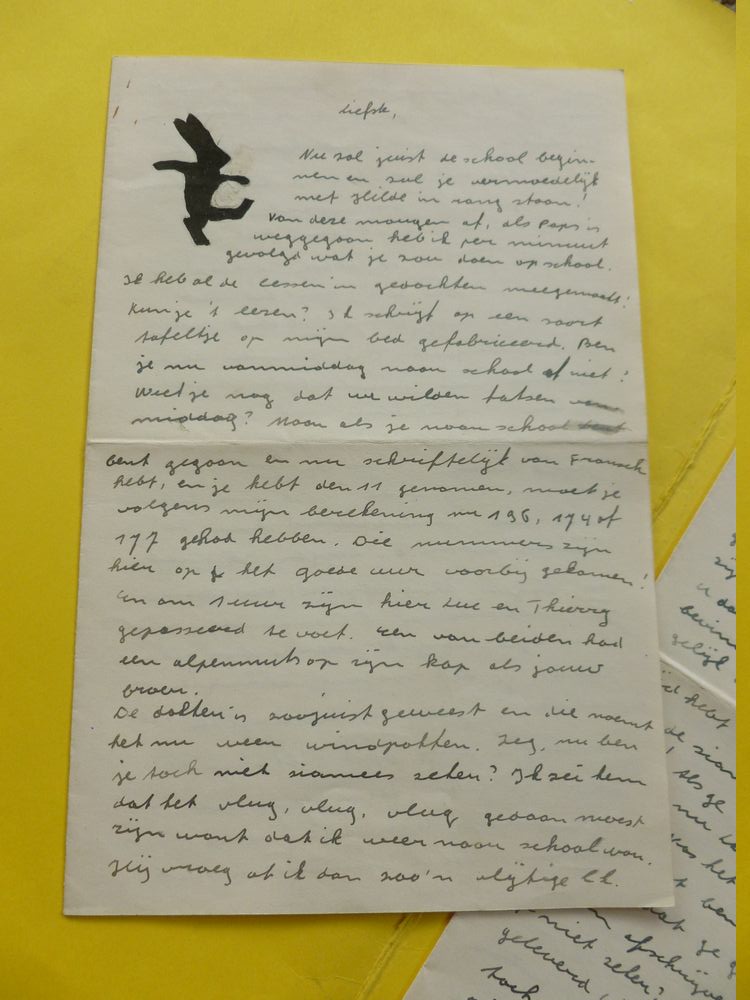 Liefste,
Nu zal juist de school begin-
nen en zal je vermoedelijk
met Hilde in rang staan!
Van deze morgen af, als Paps is
weggegaan heb ik per minuut
gevolgd wat je zou doen op school.
Ik heb al de lessen in gedachten meegemaakt!
Kun je 't lezen? Ik schrijf op een soort
tafeltje op mijn bed gefabriceerd. Ben
je nu vanmiddag naar school of niet?
Weet je nog dat we wilden fatsen van
middag? Maar als je naar school bent
bent gegaan en nu schriftelijk van Fransch
hebt, en je hebt den 11 genomen, moet je
volgens mijn berekening nr 196, 174 of
177 gehad hebben. Die nummers zijn
hier op het goede uur voorbij gekomen!
En om 1 uur zijn hier Luc en Thierry
gepasseerd te voet. Een van beiden had
een alpenmuts op zijn kop als jouw
broer.
De dokter is zoojuist geweest en die noemt
het nu weer windpokken. Zeg, nu ben
je toch niet siamees zeker? Ik zei hem
dat het vlug, vlug, vlug gedaan moest
zijn want dat ik weer naar school wou.
Hij vroeg of ik dan zoo'n vlijtige ll.
u da
gelijk
jd hebt
de siam
als je
nu
was het
ben
dat je g
afschrijve
niet zeker?
geleverd,
toch